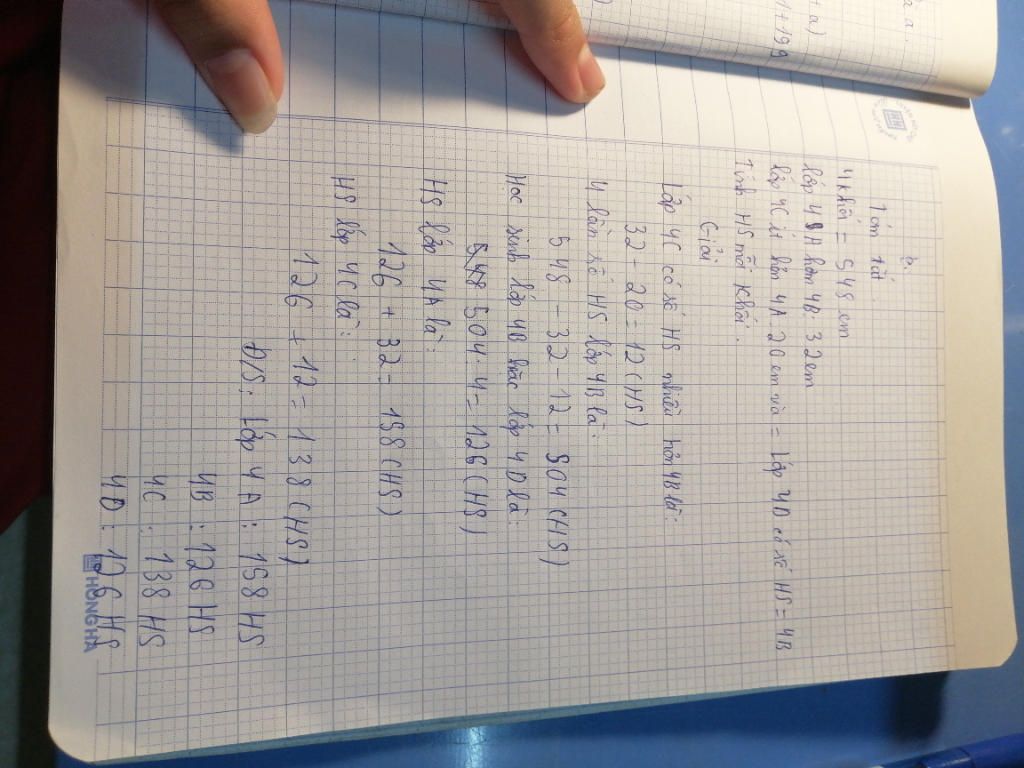 a a.
+ a)
1 + 199
b.
Tóm tắt.
4 khối = 548 em
lớp 4A hơn 4B 32em
lớp 4C ít hơn 4A 20 em và = Lớp 4D có số HS = 4B
Tính HS mỗi khối.
Giải
Lớp 4C có số HS nhiều hơn 4B là:
32 - 20 = 12 (HS)
4 lần số HS lớp 4B là:
548 - 32 - 12 = 504 (HS)
Học sinh lớp 4B hoặc lớp 4D là:
548 504 : 4 = 126 (HS)
HS lớp 4A là:
126 + 32 = 158 (HS)
HS lớp 4C là:
126 + 12 = 138 (HS)
Đ/S: Lớp 4A : 158 HS
4B : 126 HS
4C : 138 HS
4D : 126 HS
HONG HA